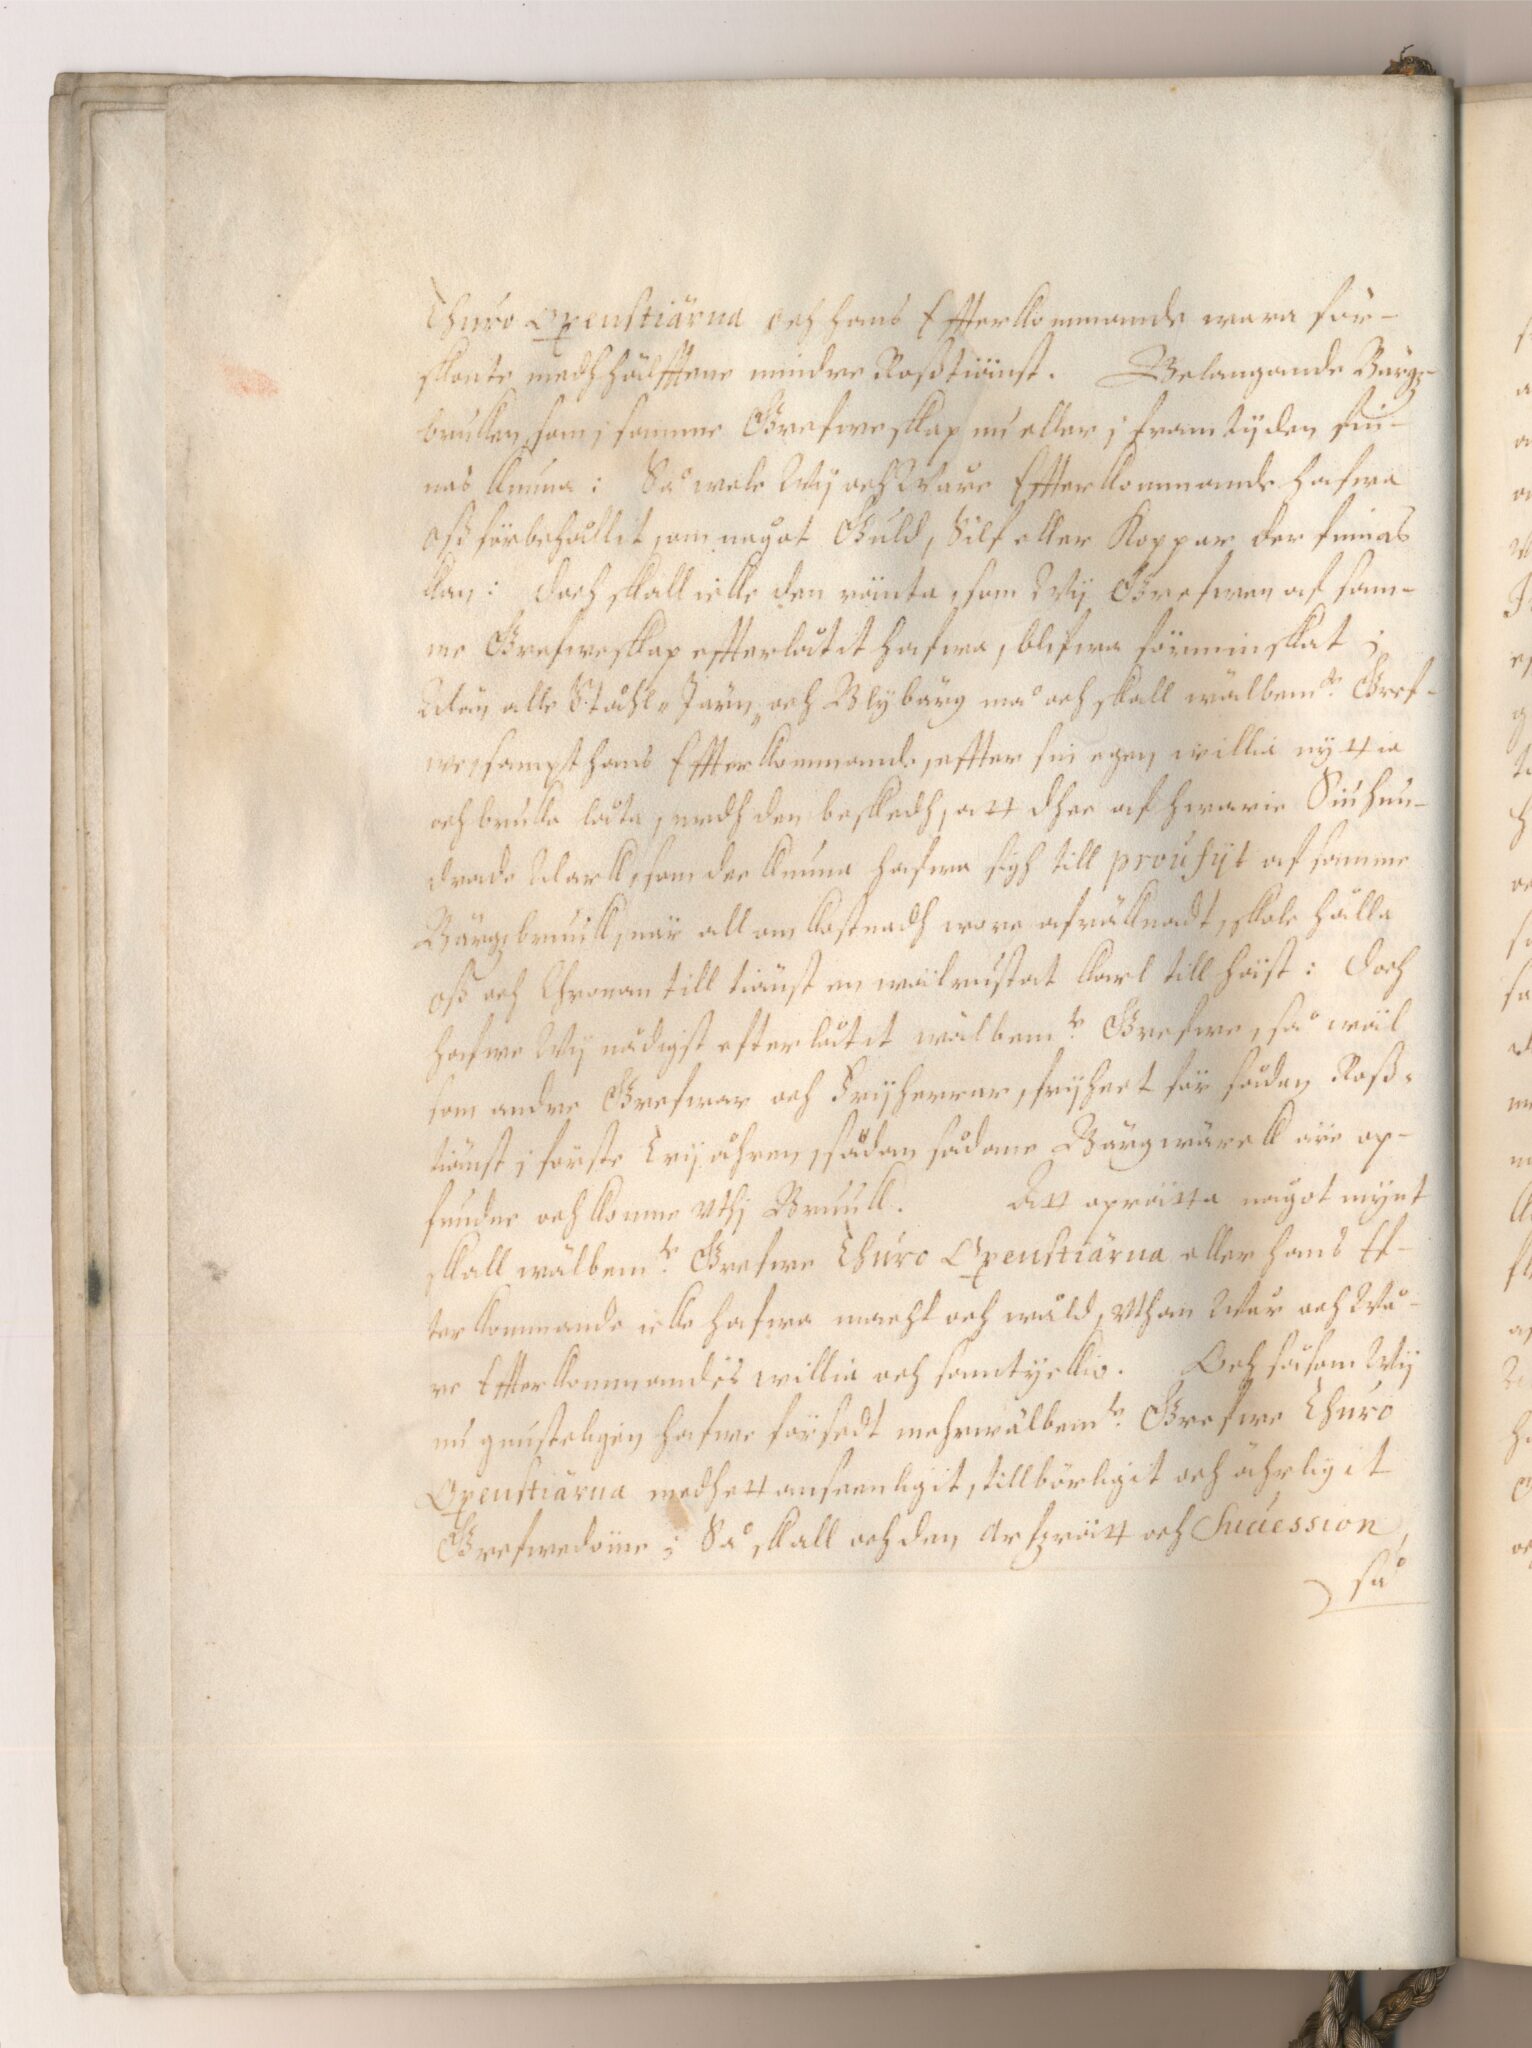 Thuro Oxenstiärna och hans Effterkommande wara för-
skonte medh hälfftene mindre Roßtiänst. Belangande Bärgz-
bruken, som i samme Grefweskap nu eller i framtijden fin-
nas kunna: Så wele Wij och Wåre Effterkommande hafwa
oß förbehållit, om något Guld, Silf eller Koppar der finnas
kan: doch skall icke den ränta, som Wij Grefwen af sam-
me Grefweskap effterlåtit hafwa, blifwa förminskat;
Män alle Ståhl- Järn- och Blybärg må och skall wälbem:te Gref-
we, sampt hans Effterkommande, effter sin egen willia nyttia
och bruka låta, medh den beskedh, att dhee af hwario Siuhun-
drade Mark, som dee kunna hafwa sigh till proufijt af samme
Bärgzbruuk, när all omkostnadh wore afräknadt, skole hålla
oß och Chronan till tiänst en wälrustat karl till häst: doch
hafwe Wij nådigst efterlåtit wälbem:te Grefwe, så wäl
som andre Grefwar och Frijherrar, frijheet för sådan Roß-
tiänst i förste Trij åhren, sädan sådane Bärgwärck äre op-
fundne och komne vthi Bruuk. Att oprätta något mynt
skall wälbem:te Grefwe Thuro Oxenstiärna eller hans Ef-
terkommande icke hafwa macht och wåld, vthan Wår och Wå-
re Effterkommandes willia och samtyckio. Och såsom Wij
nu gunsteligen hafwe försedt mehrwälbem:te Grefwe Thuro
Oxenstiärna medh ett anseenligit, tillbörligit och ährligit
Grefwedöme; Så skall och den Arfzrätt och Succession,
så